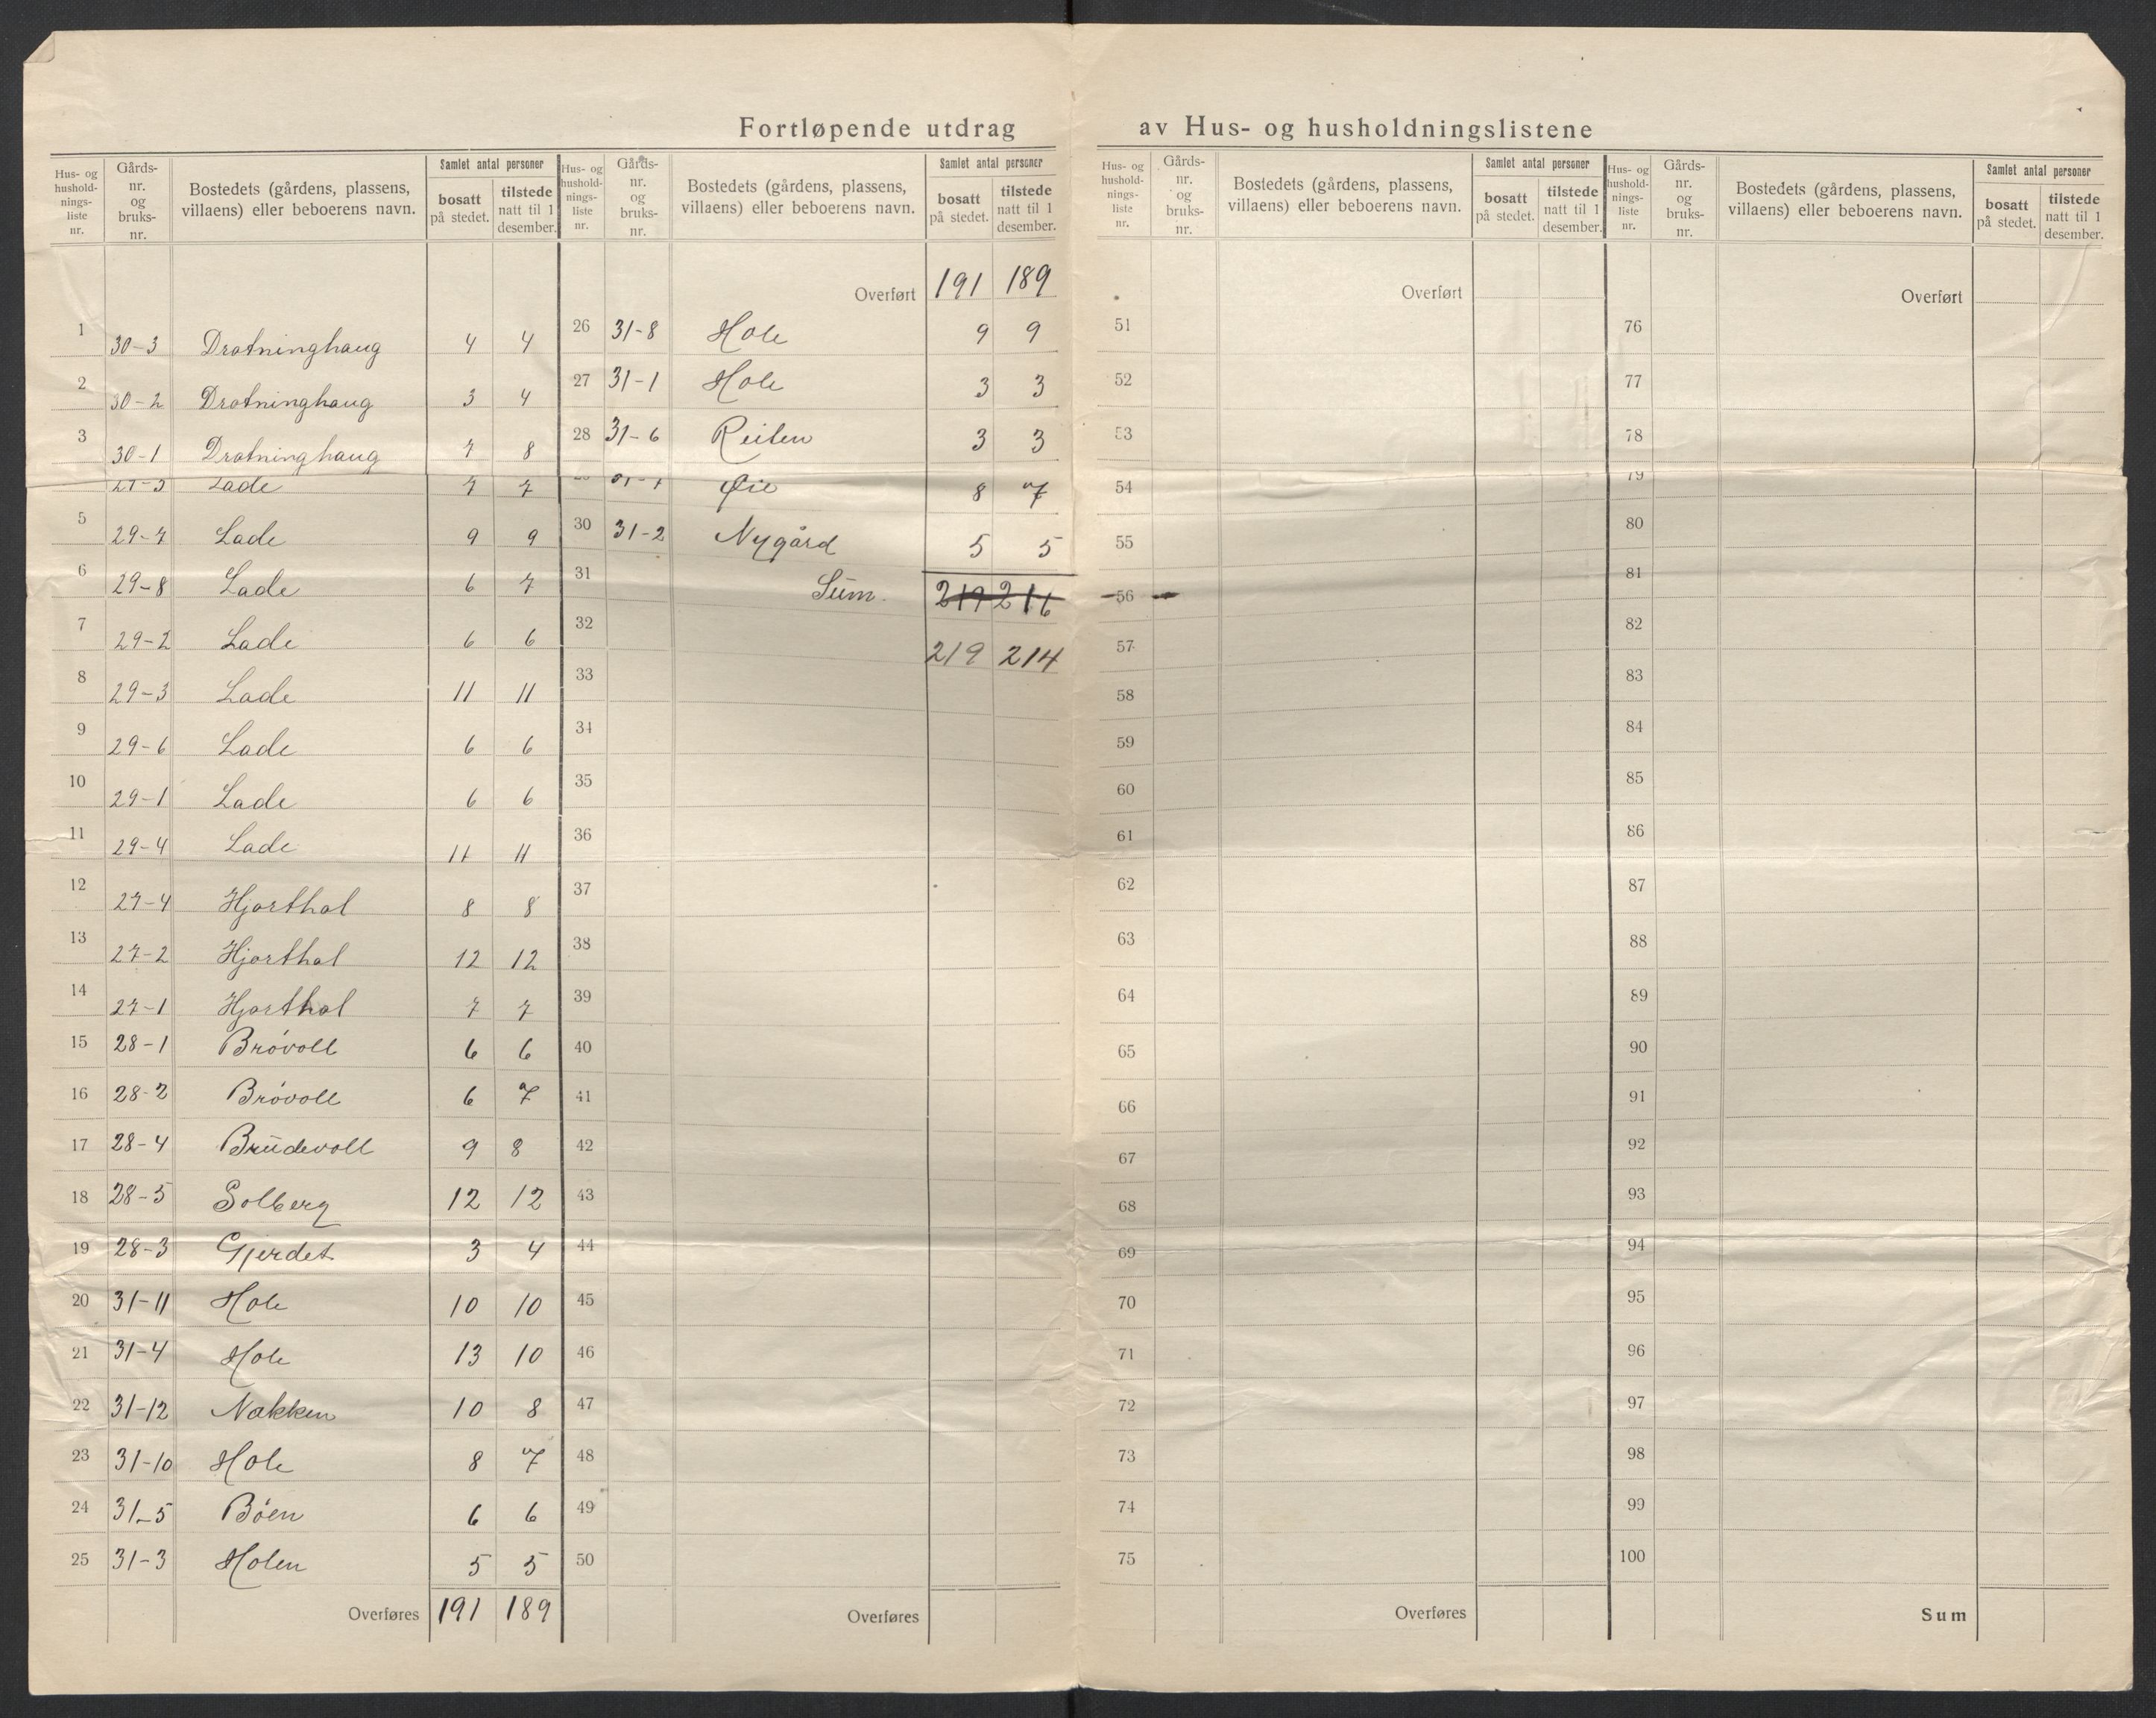 Fortløpende utdrag av Hus- og husholdningslistene
Hus- og hushold-nings-liste nr. | Gårds-nr. og bruks-nr. | Bostedets (gårdens, plassens, villaens) eller beboerens navn. | Samlet antal personer | bosatt på stedet. | tilstede natt til 1 desember.
1 30-3 Drotninghaug 4 4
2 30-2 Drotninghaug 3 4
3 30-1 Drotninghaug 7 8
Lade 7 7
5 29-7 Lade 9 9
6 29-8 Lade 6 7
7 29-2 Lade 6 6
8 29-3 Lade 11 11
9 29-6 Lade 6 6
10 29-1 Lade 6 6
11 29-4 Lade 11 11
12 27-4 Hjorthol 8 8
13 27-2 Hjorthol 12 12
14 27-1 Hjorthol 7 7
15 28-1 Brövoll 6 6
16 28-2 Brövoll 6 7
17 28-4 Brudevoll 9 8
18 28-5 Solberg 12 12
19 28-3 Gjerdet 3 4
20 31-11 Hole 10 10
21 31-4 Hole 13 10
22 31-12 Nakken 10 8
23 31-10 Hole 8 7
24 31-5 Böen 6 6
25 31-3 Holen 5 5
Overføres 191 189
Hus- og hushold-nings-liste nr. | Gårds-nr. og bruks-nr. | Bostedets (gårdens, plassens, villaens) eller beboerens navn. | Samlet antal personer | bosatt på stedet. | tilstede natt til 1 desember.
Overført 191 189
26 31-8 Hole 9 9
27 31-1 Hole 3 3
28 31-6 Reiten 3 3
Øie 8 7
30 31-2 Nygård 5 5
31 Sum. 219 216
32 219 214
33
34
35
36
37
38
39
40
41
42
43
44
45
46
47
48
49
50
Overføres
Hus- og hushold-nings-liste nr. | Gårds-nr. og bruks-nr. | Bostedets (gårdens, plassens, villaens) eller beboerens navn. | Samlet antal personer | bosatt på stedet. | tilstede natt til 1 desember.
Overført
51
52
53
54
55
56
57
58
59
60
61
62
63
64
65
66
67
68
69
70
71
72
73
74
75
Overføres
Hus- og hushold-nings-liste nr. | Gårds-nr. og bruks-nr. | Bostedets (gårdens, plassens, villaens) eller beboerens navn. | Samlet antal personer | bosatt på stedet. | tilstede natt til 1 desember.
Overført
76
77
78
79
80
81
82
83
84
85
86
87
88
89
90
91
92
93
94
95
96
97
98
99
100
Sum